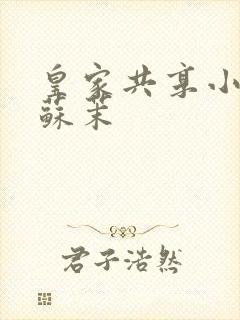 皇家共享小
蘇茉
君子浩然